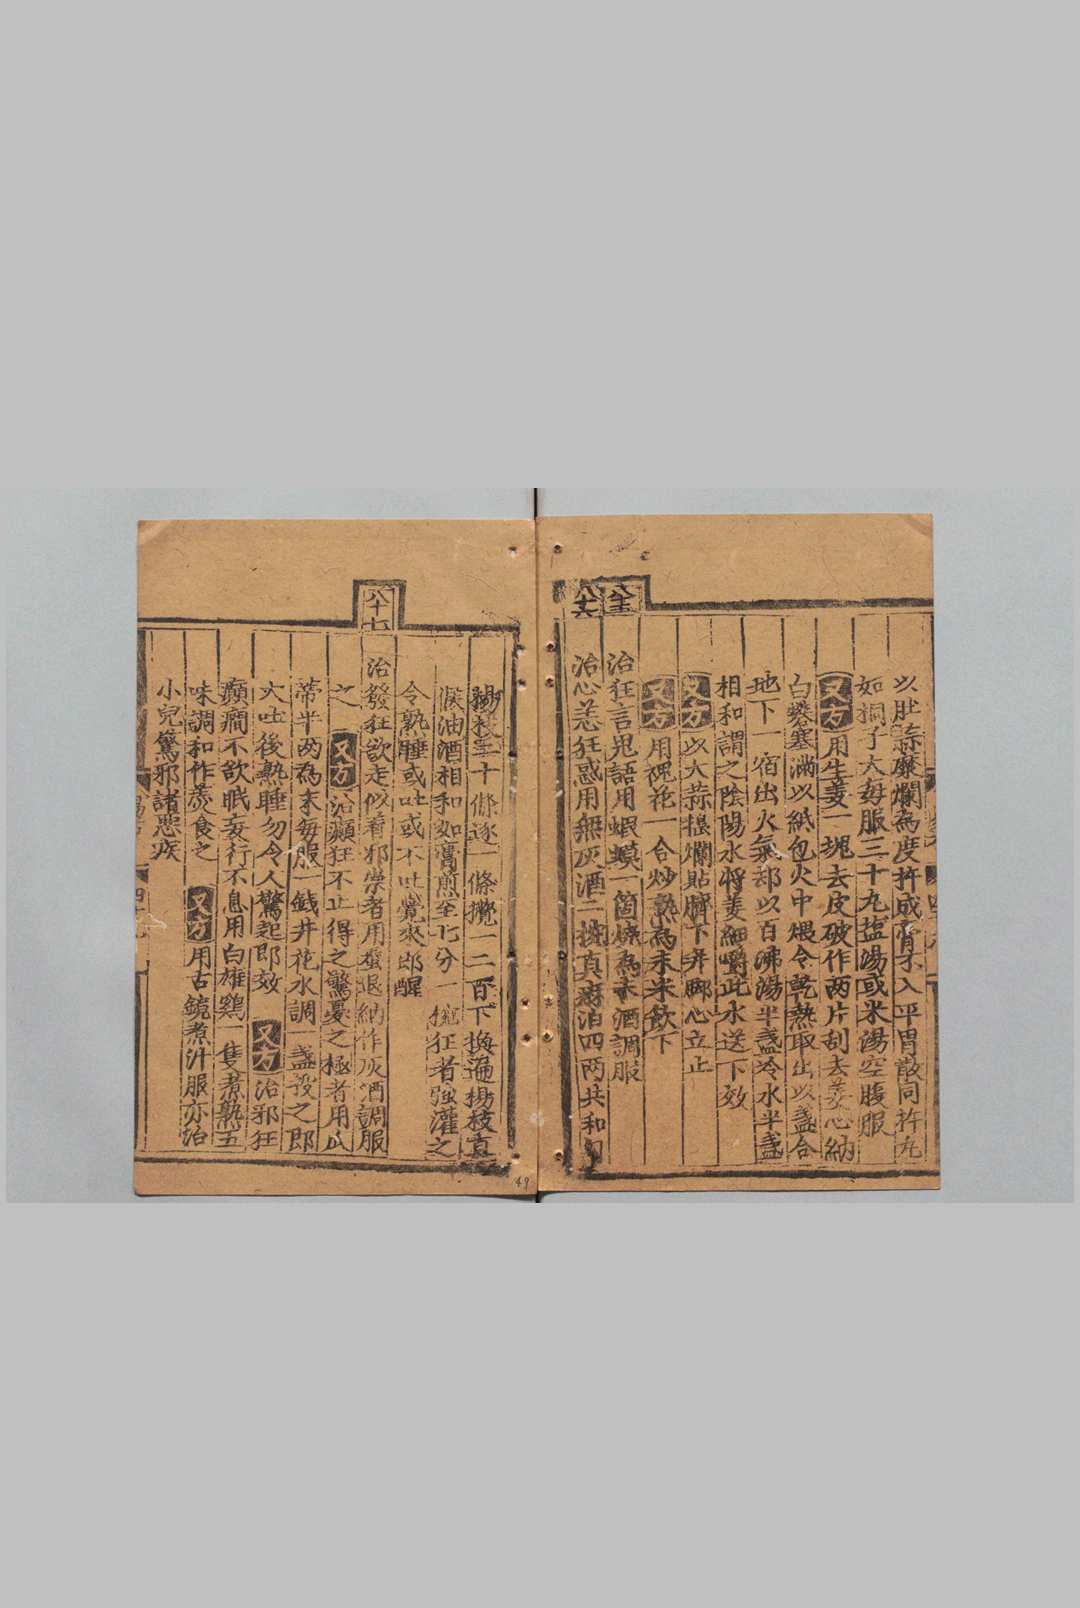 以肚蒜糜爛為度杵成膏子入平胃散同杵丸
如桐子大每服三十丸塩湯或米湯空腹服
又方用生姜一塊去皮破作兩片刮去姜心納
白礬塞滿以紙包火中煨令乹熱取出以盞合
地下一宿出火氣却以百沸湯半盞冷水半盞
相和謂之陰陽水將姜細嚼此水送下效
又方以大蒜搥爛貼臍下并脚心立止
又方用槐花一合炒熟為末米飲下
八十五
治狂言鬼語用蝦蟆一箇燒為末酒調服
八十六
治心恙狂惑用無灰酒二椀真麻油四两共和勻
楊枝二十條逐一條攪一二百下換遍楊枝直
候油酒相和如膏煎至七分一椀狂者強灌之
令熟睡或吐或不吐覺來即醒
八十七
治發狂欲走似着邪祟者用蚕退納作灰酒調服
之 又方治癲狂不止得之驚憂之極者用瓜
蒂半两為末每服一錢井花水調一盞投之即
大吐後熟睡勿令人驚起即效 又方治邪狂
癲癎不欲眠妄行不息用白雄鷄一隻煮熟五
味調和作羮食之 又方用古鏡煮汁服亦治
小兒驚邪諸惡疾
49